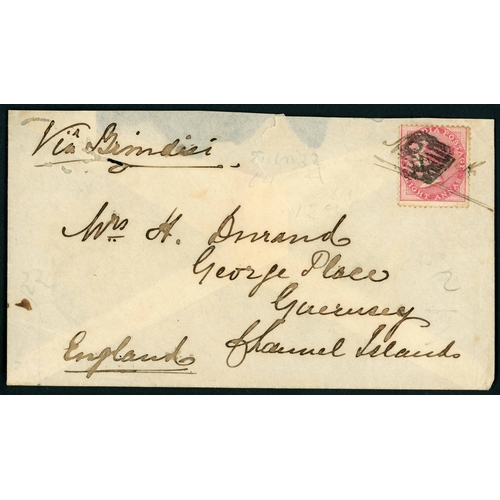 Via Brindisi
INDIA POSTAGE
EIGHT ANNAS
Mrs H. Durand
George Place
Guernsey
England Channel Islands
2
22